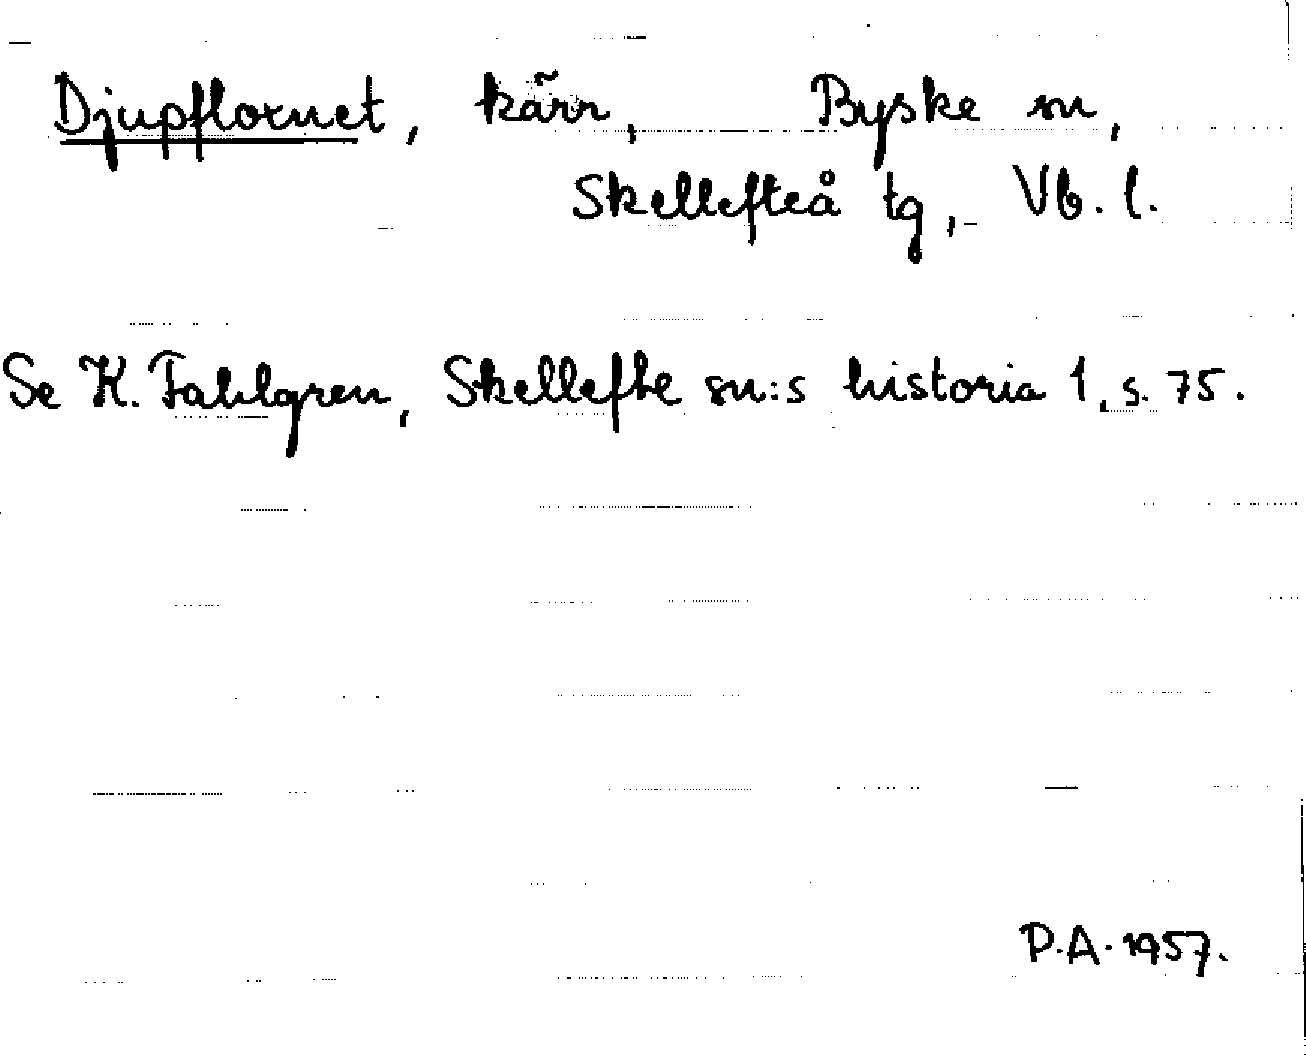 Djupflornet, kärr, Byske sn,
Skellefteå tg, Vb. l.
Se K. Fahlgren, Skellefte sn:s historia 1, s. 75.
P.A. 1957.